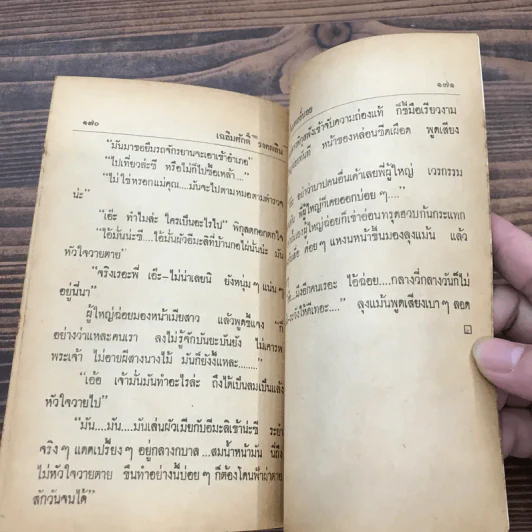 ๑๗๐
เฉลิมศักดิ์ รงคผลิน
"มันมาขอยืมรถจักรยานจะเอาเข้าอำเภอ"
"ไปเที่ยวล่ะซี หรือไม่ก็ไปซื้อเหล้า..."
"ไม่ใช่หรอกแม่คุณ....มันจะไปตามหมอตามตำรวจ
น่ะ"
"เอ๊ะ ทำไมล่ะ ใครเป็นอะไรไป" พิกุลตกอกตกใจ
"ไอ้มั่นน่ะซี....ไอ้มั่นผัวอีมะลิที่บ้านกอไผ่นั่นน่ะ มัน
หัวใจวายตาย"
"จริงเรอะพี่ เอ๊ะ-ไม่น่าเลยนี ยังหนุ่ม ๆ แน่น ๆ
อยู่นี่นา"
ผู้ใหญ่ฉ่อยมองหน้าเมียสาว แล้วพูดชี้แจง "ก็
อย่างว่าแหละคนเรา ลงไม่รู้จักบันยะบันยัง ไม่เคารพ
พระเจ้า ไม่อายผีสางนางไม้ มันก็ยังงี้แหละ........"
"เอ้อ เจ้ามั่นมันทำอะไรล่ะ ถึงได้เป็นลมเป็นแล้ง
หัวใจวายไป"
"มัน....มัน....มันเล่นผัวเมียกับอีมะลิเข้าน่ะซี
จริง ๆ แดดเปรี้ยง ๆ อยู่กลางกบาล...สมน้ำหน้ามัน นี่ถึง
ไม่หัวใจวายตาย ขืนทำอย่างนี้บ่อย ๆ ก็ต้องโดนฟ้าผ่าตาย
สักวันจนได้"
๑๗๑
พิกุลฟังเข้าจับความถ่องแท้ ก็ชี้มือเรียวงาม
ทันที หน้าของหล่อนซีดเผือด พูดเสียง
อย่าว่าบาปคนอื่นเค้าเลยพี่ผู้ใหญ่ เวรกรรม
พี่ผู้ใหญ่ก็เคยออกบ่อย ๆ...."
ผู้ใหญ่ฉ่อยก็เข่าอ่อนทรุดฮวบก้นกระแทก
ค่อย ๆ แหงนหน้าขึ้นมองลุงแม้น แล้ว
....มึงอีกคนเรอะ ไอ้ฉ่อย....กลางวี่กลางวันก็ไม่
ให้ดีเทอะ...." ลุงแม้นพูดเสียงเบา ๆ ลอด